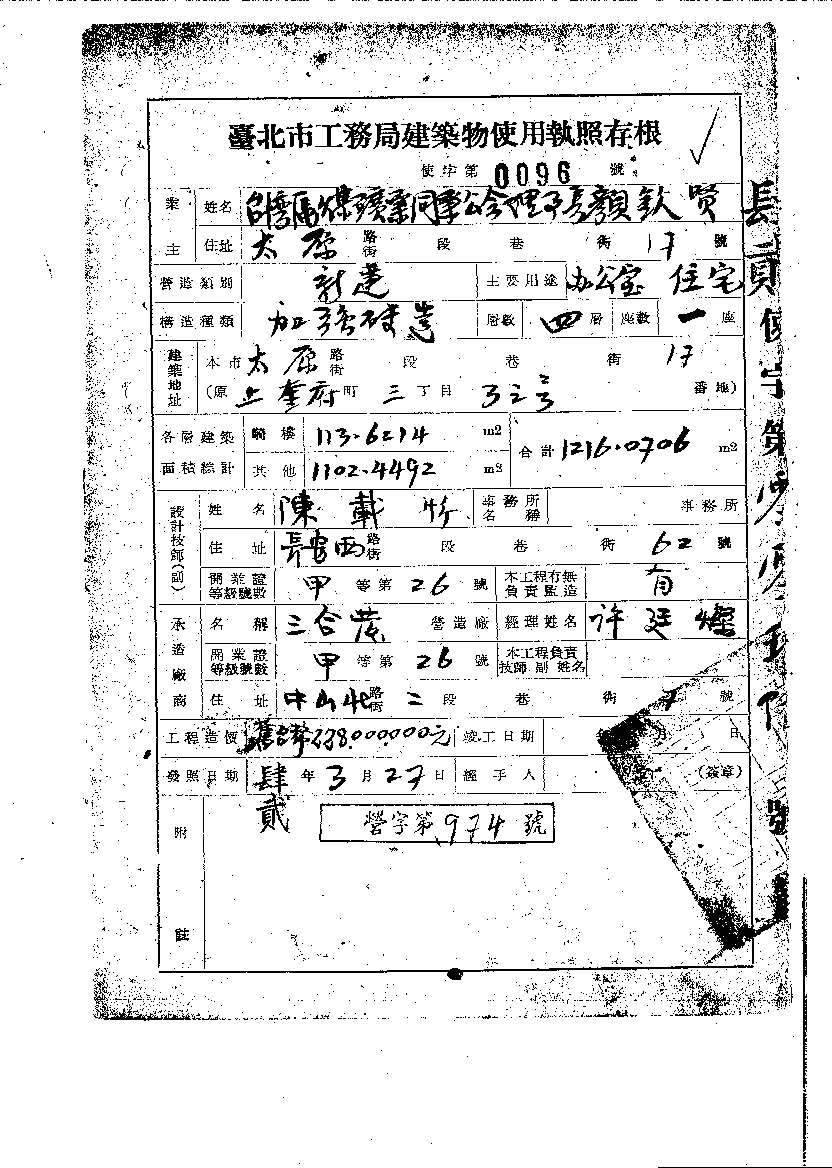 臺北市工務局建築物使用執照存根
使字第 0096 號
業主 姓名 台灣區煤礦業同業公會理事長顏欽賢
住址 太原 路街 段 巷 街 17 號
營造類別 新建 主要用途 办公室 住宅
構造種類 加强磚造 層數 四層 座數 一座
建築地址 本市 太原 路街 段 巷 街 17
(原 上奎府町 三丁目 番地)
各層建築面積綜計 騎樓 113.6214 m2 合計 1216.0706 m2
其他 1102.4492 m2
設計技師(副) 姓名 陳載 事務所名稱 事務所
住址 長安西 路街 段 巷 街 62 號
開業證等級號數 甲等第 26 號 本工程有無負責監造 有
承造廠商 名稱 三合茂 營造廠 經理姓名 许廷燦
開業證等級號數 甲等第 26 號 本工程負責技師副姓名
住址 中山北 路街 二段 巷 街 7 號
工程造價 舊台幣238.000000元 竣工日期 年 月 日
發照日期 肆貳年 3月27日 經手人 (簽章)
附註
營字第 974 號
長貳使字第 號